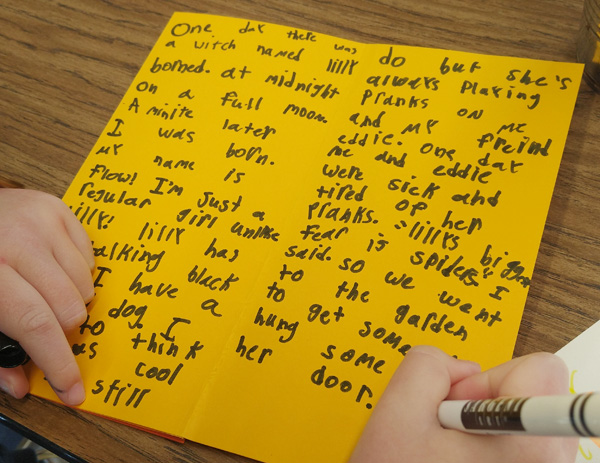 One day there was
a witch named lilly
borned. at midnight
on a full moon.
A minite later
I was born.
My name is
flow! I'm just a
regular girl unlike
lilly! lilly has
alking black
I have a
dog. I
to think
as cool
still
do but she's
always playing
pranks on me
and my freind
eddie. one day
me and eddie
were sick and
tired of her
pranks. "lillys
fear is spiders" I
said. so we went
to the garden
to get some
hung some
her door.